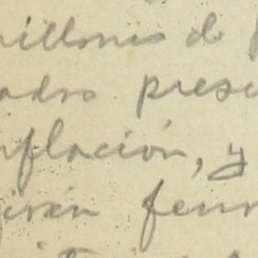 millones de
adro prese
nflación, y
irán fenr